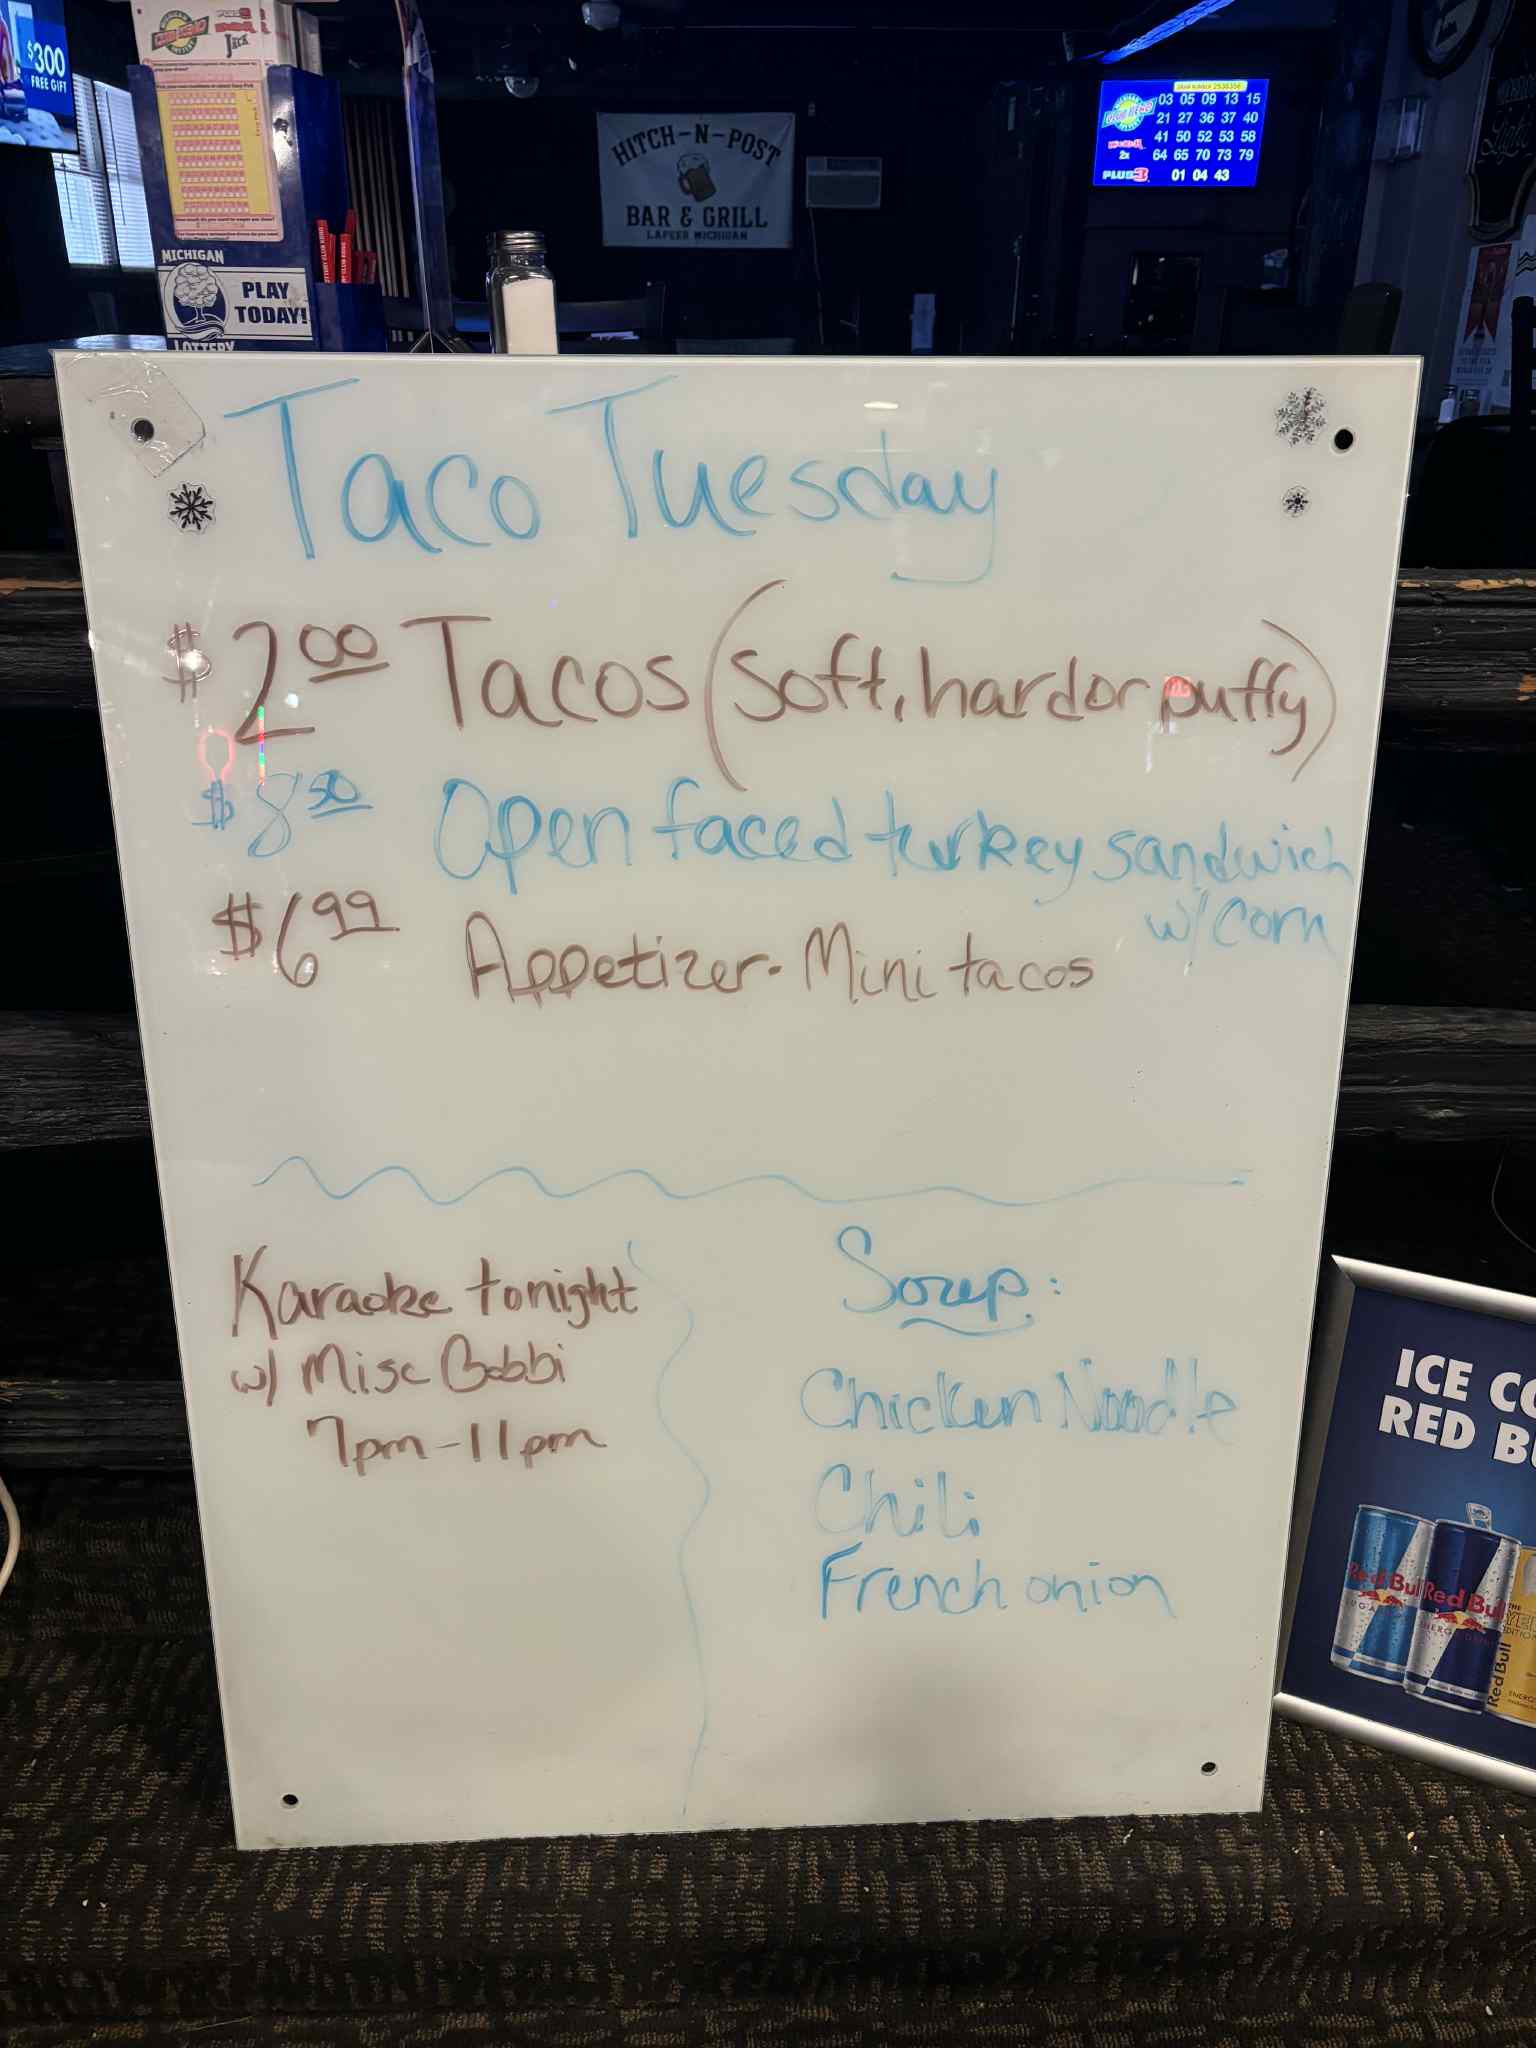 $300
FREE GIFT
JACK
MICHIGAN
PLAY
TODAY!
LOTTERY
HITCH-N-POST
BAR & GRILL
LAPEER MICHIGAN
03 05 09 13 15
21 27 36 37 40
41 50 52 53 58
2x 64 65 70 73 79
PLUS 3 01 04 43
Light
Taco Tuesday
$2.00 Tacos (soft, hard or puffy)
$8.50 Open faced turkey sandwich
w/ corn
$6.99 Appetizer - Mini tacos
Karaoke tonight
w/ Misc Bobbi
7pm-11pm
Soup:
Chicken Noodle
Chili
French onion
ICE CO
RED BU
Red Bul Red Bull
Red Bull